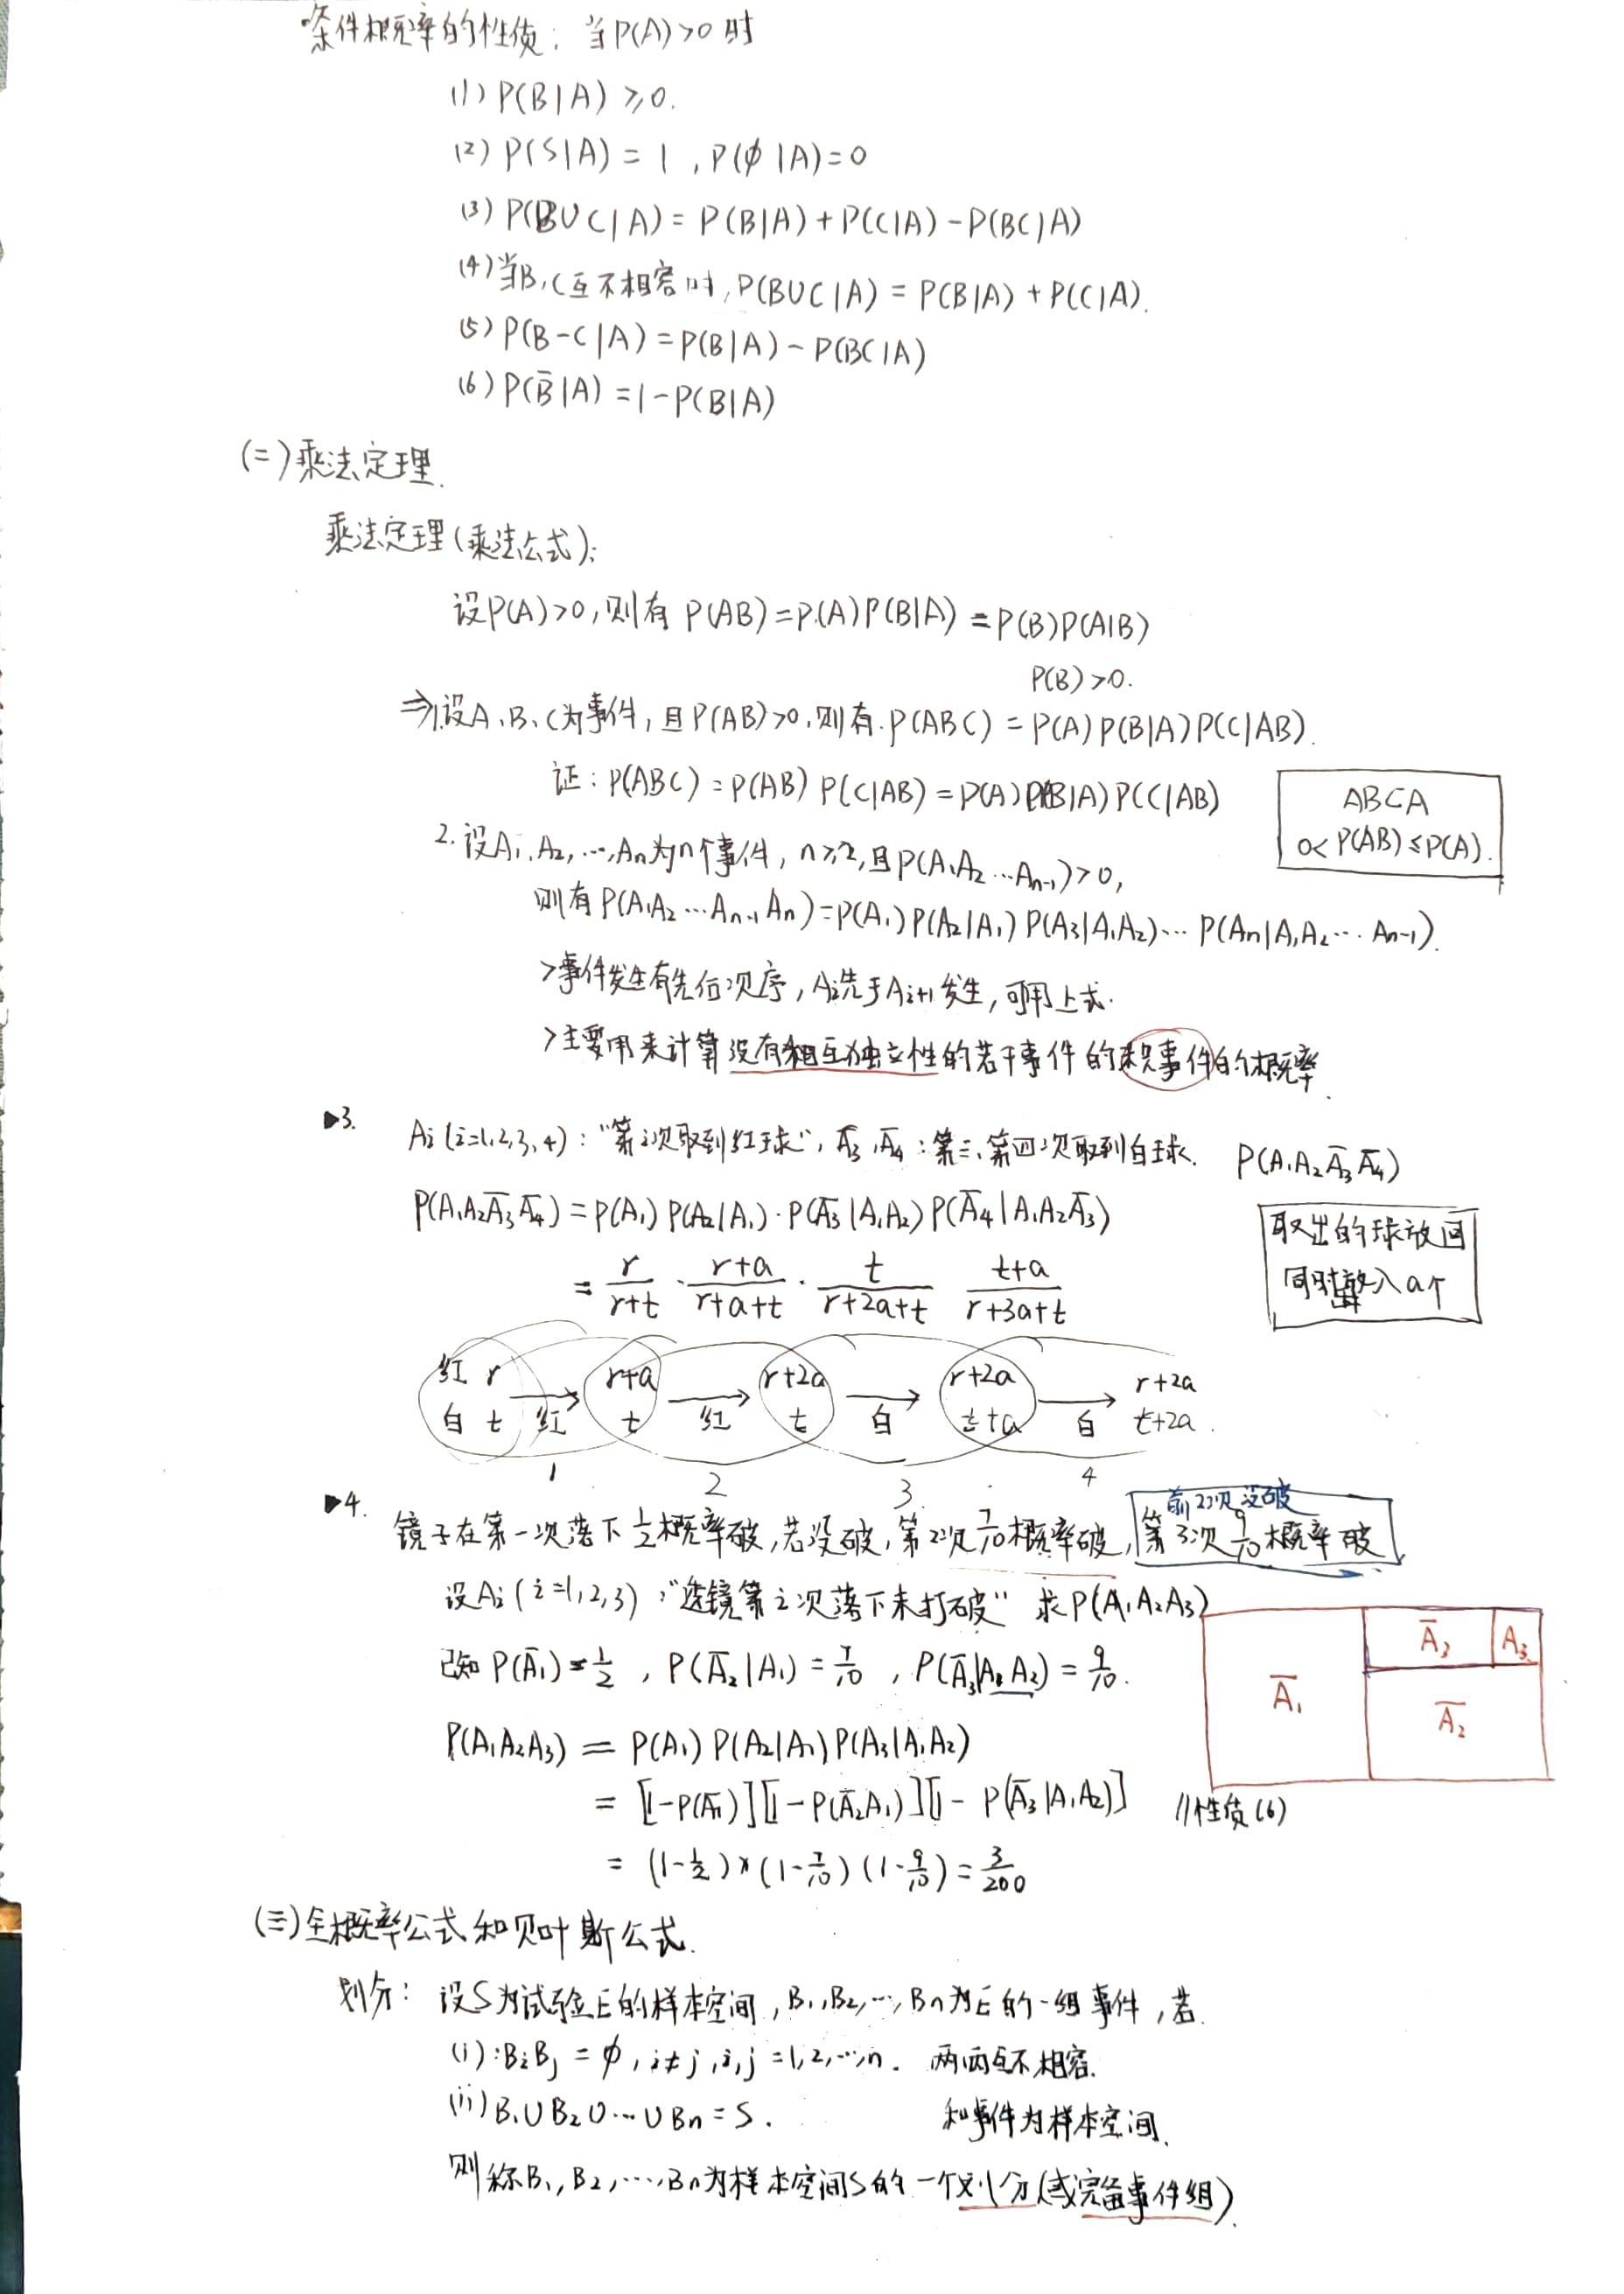 条件概率的性质：当P(A)>0时
(1) P(B|A) ≥0.
(2) P(S|A) = 1 , P(ϕ|A)=0
(3) P(B∪C|A) = P(B|A)+P(C|A)-P(BC|A)
(4) 当B、C互不相容时, P(B∪C|A) = P(B|A) + P(C|A).
(5) P(B-C|A) = P(B|A) - P(BC|A)
(6) P(B̄|A) = 1-P(B|A)
(二) 乘法定理.
乘法定理(乘法公式):
设P(A)>0, 则有 P(AB)=P(A)P(B|A) = P(B)P(A|B)
P(B)>0.
⇒1.设A、B、C为事件, 且P(AB)>0, 则有. P(ABC) = P(A)P(B|A)P(C|AB).
证: P(ABC) = P(AB) P(C|AB) = P(A)P(B|A)P(C|AB)
AB⊂A
0< P(AB) ≤P(A).
2. 设A₁,A₂,…,Aₙ为n个事件, n≥2,且P(A₁A₂…Aₙ₋₁)>0,
则有P(A₁A₂…Aₙ₋₁Aₙ)=P(A₁)P(A₂|A₁)P(A₃|A₁A₂)…P(Aₙ|A₁A₂…Aₙ₋₁).
>事件发生有先后次序, Aᵢ先于Aᵢ₊₁发生, 可用上式.
>主要用来计算没有相互独立性的若干事件的积事件的概率.
▶3. Aᵢ(i=1,2,3,4): "第i次取到红球", Ā₃,Ā₄: 第三、第四次取到白球. P(A₁A₂Ā₃Ā₄)
P(A₁A₂Ā₃Ā₄) = P(A₁)P(A₂|A₁)·P(Ā₃|A₁A₂)P(Ā₄|A₁A₂Ā₃)
= r/(r+t) · (r+a)/(r+a+t) · t/(r+2a+t) (t+a)/(r+3a+t)
取出的球放回
同时放入a个
红 r → r+a → r+2a → r+2a → r+2a
白 t 红 t 红 t 白 t+a 白 t+2a.
1 2 3 4
前2次没破
▶4. 镜子在第一次落下1/2概率破,若没破,第2次7/10概率破, 第3次9/10概率破
设Aᵢ(i=1,2,3): "透镜第i次落下未打破" 求P(A₁A₂A₃)
已知 P(Ā₁)=1/2 , P(Ā₂|A₁) = 7/10 , P(Ā₃|A₁A₂) = 9/10.
Ā₁ Ā₃ A₃
Ā₂
P(A₁A₂A₃) = P(A₁)P(A₂|A₁)P(A₃|A₁A₂)
= [1-P(Ā₁)][1-P(Ā₂A₁)][1- P(Ā₃|A₁A₂)] //性质(6)
= (1-1/2)×(1-7/10)(1-9/10)=3/200
(三) 全概率公式和贝叶斯公式.
划分: 设S为试验E的样本空间, B₁,B₂,…,Bₙ为E的一组事件, 若
(i): BᵢBⱼ = ϕ, i≠j, i,j =1,2,…,n. 两两互不相容.
(ii) B₁∪B₂∪…∪Bₙ=S. 和事件为样本空间.
则称B₁,B₂,…,Bₙ为样本空间S的一个划分(或完备事件组).